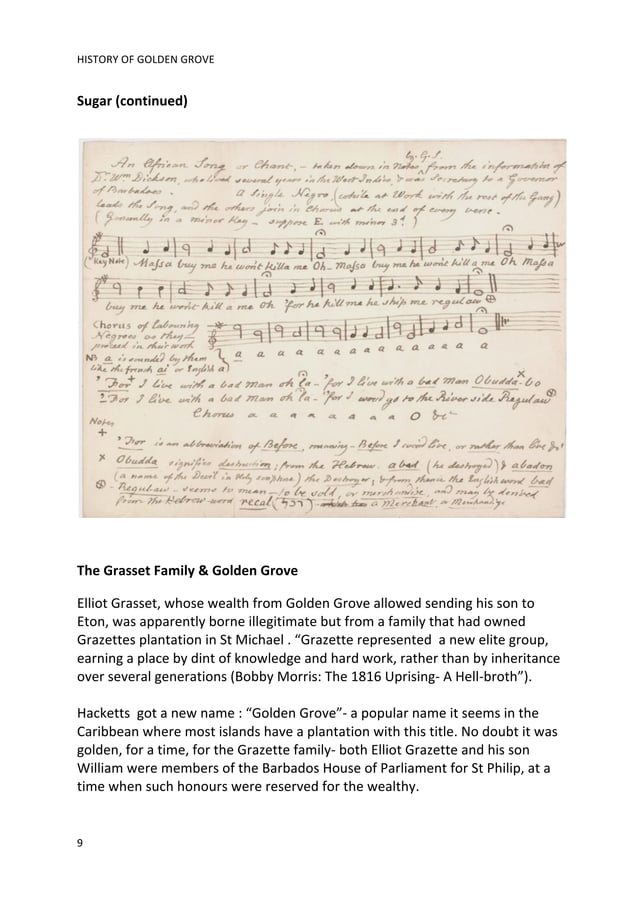 HISTORY OF GOLDEN GROVE
Sugar (continued)
by G.S.
An African Song or Chant, – taken down in Notes, from the information of
Dr. Wm Dickson, who lived several years in the West Indies, & was Secretary to a Governor
of Barbadoes. A Single Negro (while at Work with the rest of the Gang)
leads the Song, and the others join in Chorus at the end of every verse.
(Generally in a minor Key – suppose E. with minor 3d.)
(Key Note) Massa buy me he wont killa me Oh Massa buy me he wont kill a me Oh Massa
buy me he wont kill a me oh 'for he kill me he ship me regulaw ⊕
Chorus of labouring
Negroes as they
proceed in their work
a a a a a a a a a a a a
NB a is sounded by them
like the french ai or English a)
'For + I live with a bad man oh la – 'for I live with a bad man Obudda-bo
'For I live with a bad man oh la – 'for I woud go to the River side Regulaw
Chorus a a a a a a a O &c
Notes
+ 'For is an abbreviation of Before, meaning – Before I woud live, or rather than live &c
x Obudda signifies destruction; from the Hebrew abad (he destroyed) & abadon
(a name of the Devil in Holy scripture) the Destroyer; & from thence the English word bad
⊕ – Regulaw – seems to mean – to be sold, or merchandise, and may be derived
from the Hebrew word recal (רכל) a Merchant, or Merchandize
The Grasset Family & Golden Grove
Elliot Grasset, whose wealth from Golden Grove allowed sending his son to
Eton, was apparently borne illegitimate but from a family that had owned
Grazettes plantation in St Michael . “Grazette represented  a new elite group,
earning a place by dint of knowledge and hard work, rather than by inheritance
over several generations (Bobby Morris: The 1816 Uprising- A Hell-broth”).
Hacketts  got a new name : “Golden Grove”- a popular name it seems in the
Caribbean where most islands have a plantation with this title. No doubt it was
golden, for a time, for the Grazette family- both Elliot Grazette and his son
William were members of the Barbados House of Parliament for St Philip, at a
time when such honours were reserved for the wealthy.
9